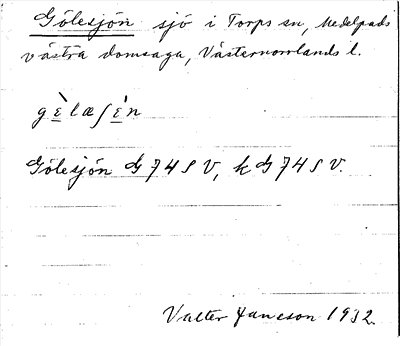 Gölesjön sjö i Torps sn, Medelpads
västra domsaga, Västernorrlands l.
gè̲læʃè̲n
Gölesjön G 74 S V, k G 74 S V.
Valter Jansson 1932.